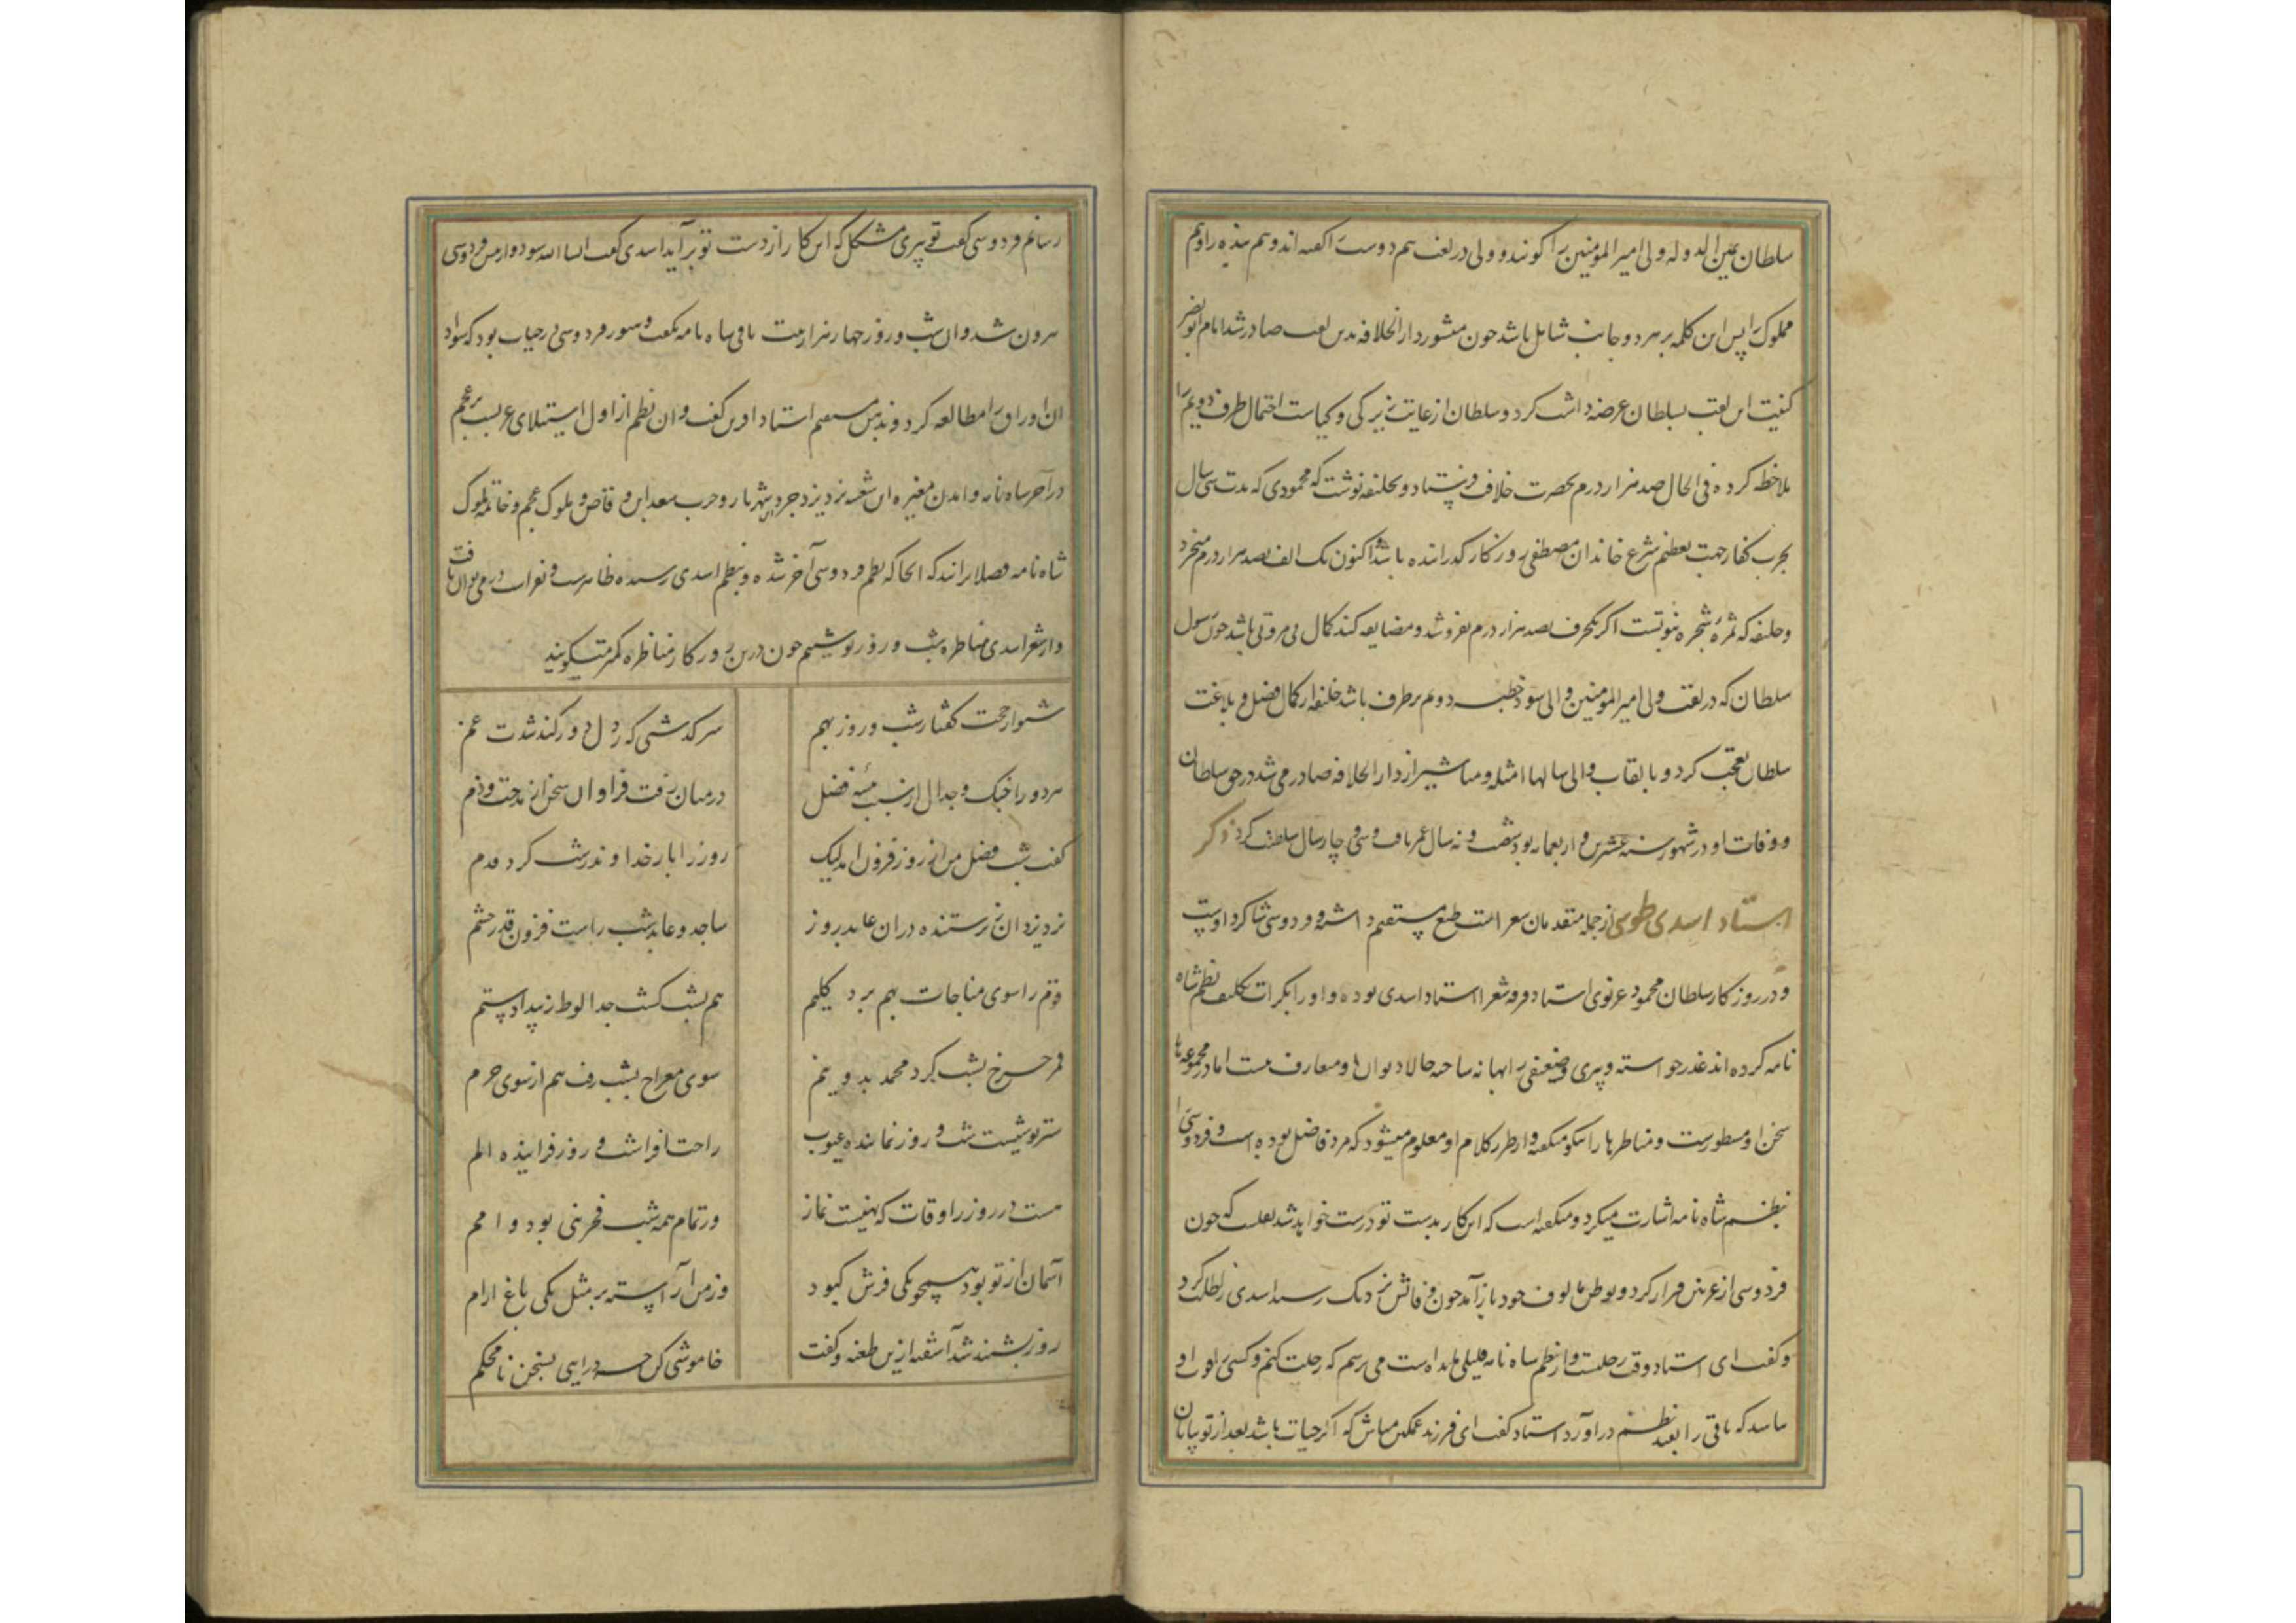 سلطان یمین الدوله ولی امیر المومنین را کویند و ولی در لغت هم دوست را کفته اند و هم بنده را و هم
مملوک را پس این کلمه بر هر دو جانب شامل باشد چون منشور دار الخلافه بدین لقب صادر شد امام ابو نصر
کنیت این لقب بسلطان عرضه داشت کرد و سلطان از غایت زیرکی و کیاست احتمال طرف دویم را
ملاحظه کرده فی الحال صد هزار درم بحضرت خلافت فرستاد و بخلیفه نوشت که محمودی که مدت سی سال
بحرب کفار جهت تعظیم شرع خاندان مصطفی روزکار کذرانده باشد اکنون یک الف بصد هزار درم میخرد
و خلیفه که ثمره شجره نبوتست اکر یکحرف بصد هزار درم نفروشد و مضایقه کند کمال بی مروتی باشد چون رسول
سلطان که در لغت ولی امیر المومنین والی سود خطبه دوم برطرف باشد خلیفه از کمال فضل و بلاغت
سلطان تعجب کرد و بالقاب والی سالها امثله و مناشیر از دار الخلافه صادر می شد در حق سلطان
و وفات او در شهور سنه عشرین و اربعمایه بود شصت و نه سال عمر یافت و سی و چار سال سلطنت کرد ذکر
استاد اسدی طوسی از جمله متقدمان شعر است طبع مستقیم داشته و فردوسی شاکرد اوست
و در روزکار سلطان محمود غزنوی استاد فرقه شعرا استاد اسدی بوده و او را بکرات تکلیف نظم شاه
نامه کرده اند عذر خواسته و پیری و ضعیفی را بهانه ساخته حالا دیوان او متعارف نیست اما در مجموعه ها
سخن او مسطورست و مناظرها را نیکو میکفته و از طرز کلام او معلوم میشود که مرد فاضل بوده است و فردوسی را
بنظم شاه نامه اشارت میکرد و میکفته است که این کار بدست تو درست خواهد شد نقلست که چون
فردوسی از غزنین فرار کرد و بوطن مالوف خود باز آمد چون وفاتش نزدیک رسید اسدی را طلب کرد
و کفت ای استاد وقت رحلتست و از نظم شاه نامه قلیلی مانده است می ترسم که رحلت کنم و کسی را قوت او
نباشد که باقی را بقید نظم در آورد استاد کفت ای فرزند غمکین مباش که اکر حیات باشد بعد از تو بپایان
رسانم فردوسی کفت تو پیری مشکل که این کار از دست تو برآید اسدی کفت ان شا الله شود و از پیش فردوسی
بیرون شد و آن شب و روز چهار هزار بیت باقی شاه نامه بکفت و هنوز فردوسی در حیات بود که سواد
آن اوراق را مطالعه کرد و بر ذهن مستقیم استاد آفرین کفت و آن نظم از اول استیلای عربست بر عجم
در آخر شاه نامه و آمدن مغیره ابن شعبه نزد یزدجرد بن شهریار و حرب سعد ابن وقاص و ملوک عجم و خاتمه ملوک
شاه نامه فضلا برانند که آنجا که نظم فردوسی آخر شده و بنظم اسدی رسیده ظاهرست و بفراست در می توان یافت
و از شعر اسدی مناظره شب و روز نوشتیم چون درین روزکار مناظره کمتر میکویند
شنو از حجت کفتار شب و روز بهم
سرکذشتی که ز دل دور کند شدت غم
هر دو را جنک و جدال از سبب بیشه فضل
در میان رفت فراوان سخن از مدحت و ذم
کفت شب فضل من از روز فزون آمد لیک
روز را باز خداوند ز شب کرد قدم
نزد یزدان ز پرستنده در آن عابد روز
ساجد و عابد شب راست فزون قدر حشم
قوم را سوی مناجات بهم برد کلیم
هم بشب کشت جدا لوط ز بیداد و ستم
قمر چرخ بشب کرد محمد بدو نیم
سوی معراج بشب رفت هم از سوی حرم
ستر پوشیست شب و روز نماینده عیوب
راحت افزاست شب و روز فزاینده الم
هست در روز ز اوقات که نهیست نماز
ور تمام همه شب فخر نبی بود و امم
آسمان از تو بود همچو یکی فرش کبود
وز من آراسته بر مثل یکی باغ ارم
روز بشنید شد آشفته ازین طعنه و کفت
خاموشی کن چه درایی بسخن نامحکم